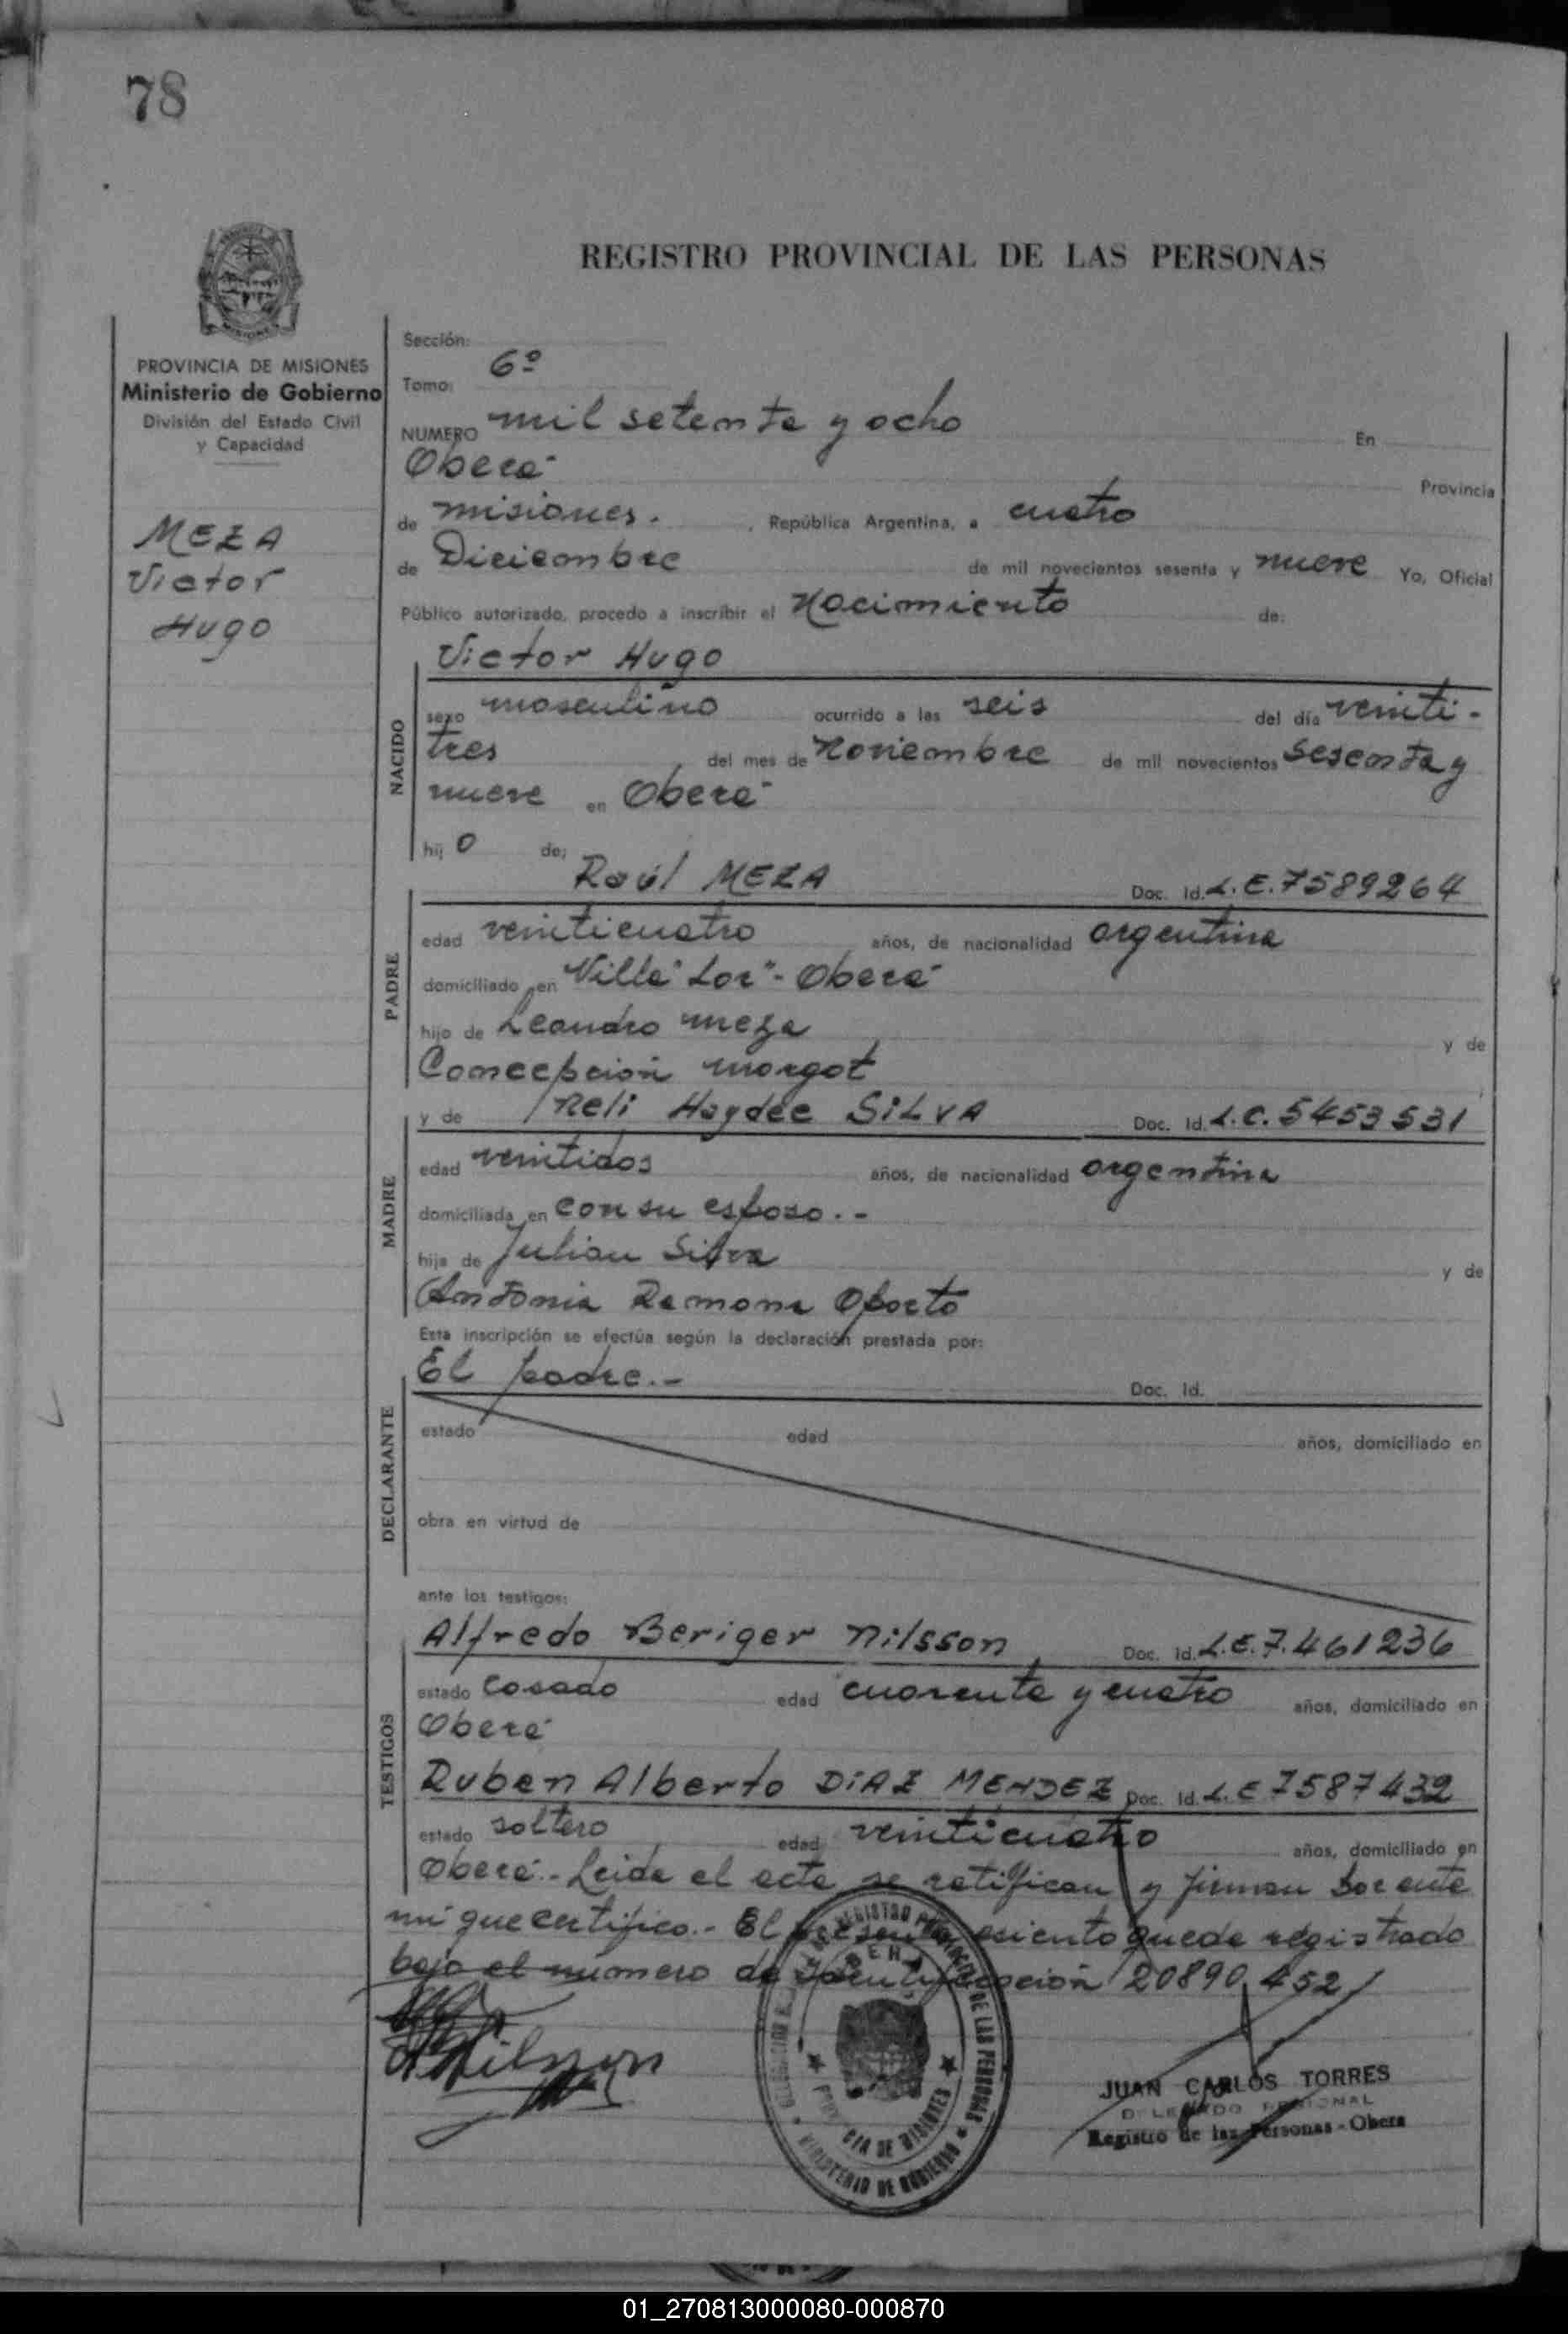 78
REGISTRO PROVINCIAL DE LAS PERSONAS
PROVINCIA DE MISIONES
Ministerio de Gobierno
División del Estado Civil
y Capacidad
MEZA
Victor
Hugo
Sección:
Tomo: 6º
NUMERO mil setenta y ocho En
Oberá Provincia
de misiones. , República Argentina, a cuatro
de Diciembre de mil novecientos sesenta y nueve Yo, Oficial
Público autorizado, procedo a inscribir el Nacimiento de:
Victor Hugo
NACIDO
sexo masculino ocurrido a las seis del día veinti-
tres del mes de Noviembre de mil novecientos sesenta y
nueve en Oberá
hij o de:
Raúl MEZA Doc. Id. L.E. 7589264
PADRE
edad veinticuatro años, de nacionalidad argentina
domiciliado en Villa "Lor" - Oberá
hijo de Leandro Meza y de
Concepción Morgot
y de Neli Haydée SILVA Doc. Id. L.C. 5453531
MADRE
edad veintidos años, de nacionalidad argentina
domiciliada en con su esposo.-
hija de Julian Silva y de
Antonia Ramona Oporto
Esta inscripción se efectúa según la declaración prestada por:
El padre.- Doc. Id.
DECLARANTE
estado edad años, domiciliado en
obra en virtud de
ante los testigos:
Alfredo Beriger Nilsson Doc. Id. L.E. 7.461236
TESTIGOS
estado casado edad cuarenta y cuatro años, domiciliado en
Oberá
Ruben Alberto DIAZ MENDEZ Doc. Id. L.E 7587432
estado soltero edad veinticuatro años, domiciliado en
Oberá.- Leida el acta se ratifican y firman por ante
mi que certifico.- El presente asiento queda registrado
bajo el número de identificación 20890,452
Nilsson
REGISTRO PROVINCIAL DE LAS PERSONAS
OBERA
PROVINCIA DE MISIONES
MINISTERIO DE GOBIERNO
JUAN CARLOS TORRES
DELEGADO REGIONAL
Registro de las Personas - Obera
01_270813000080-000870